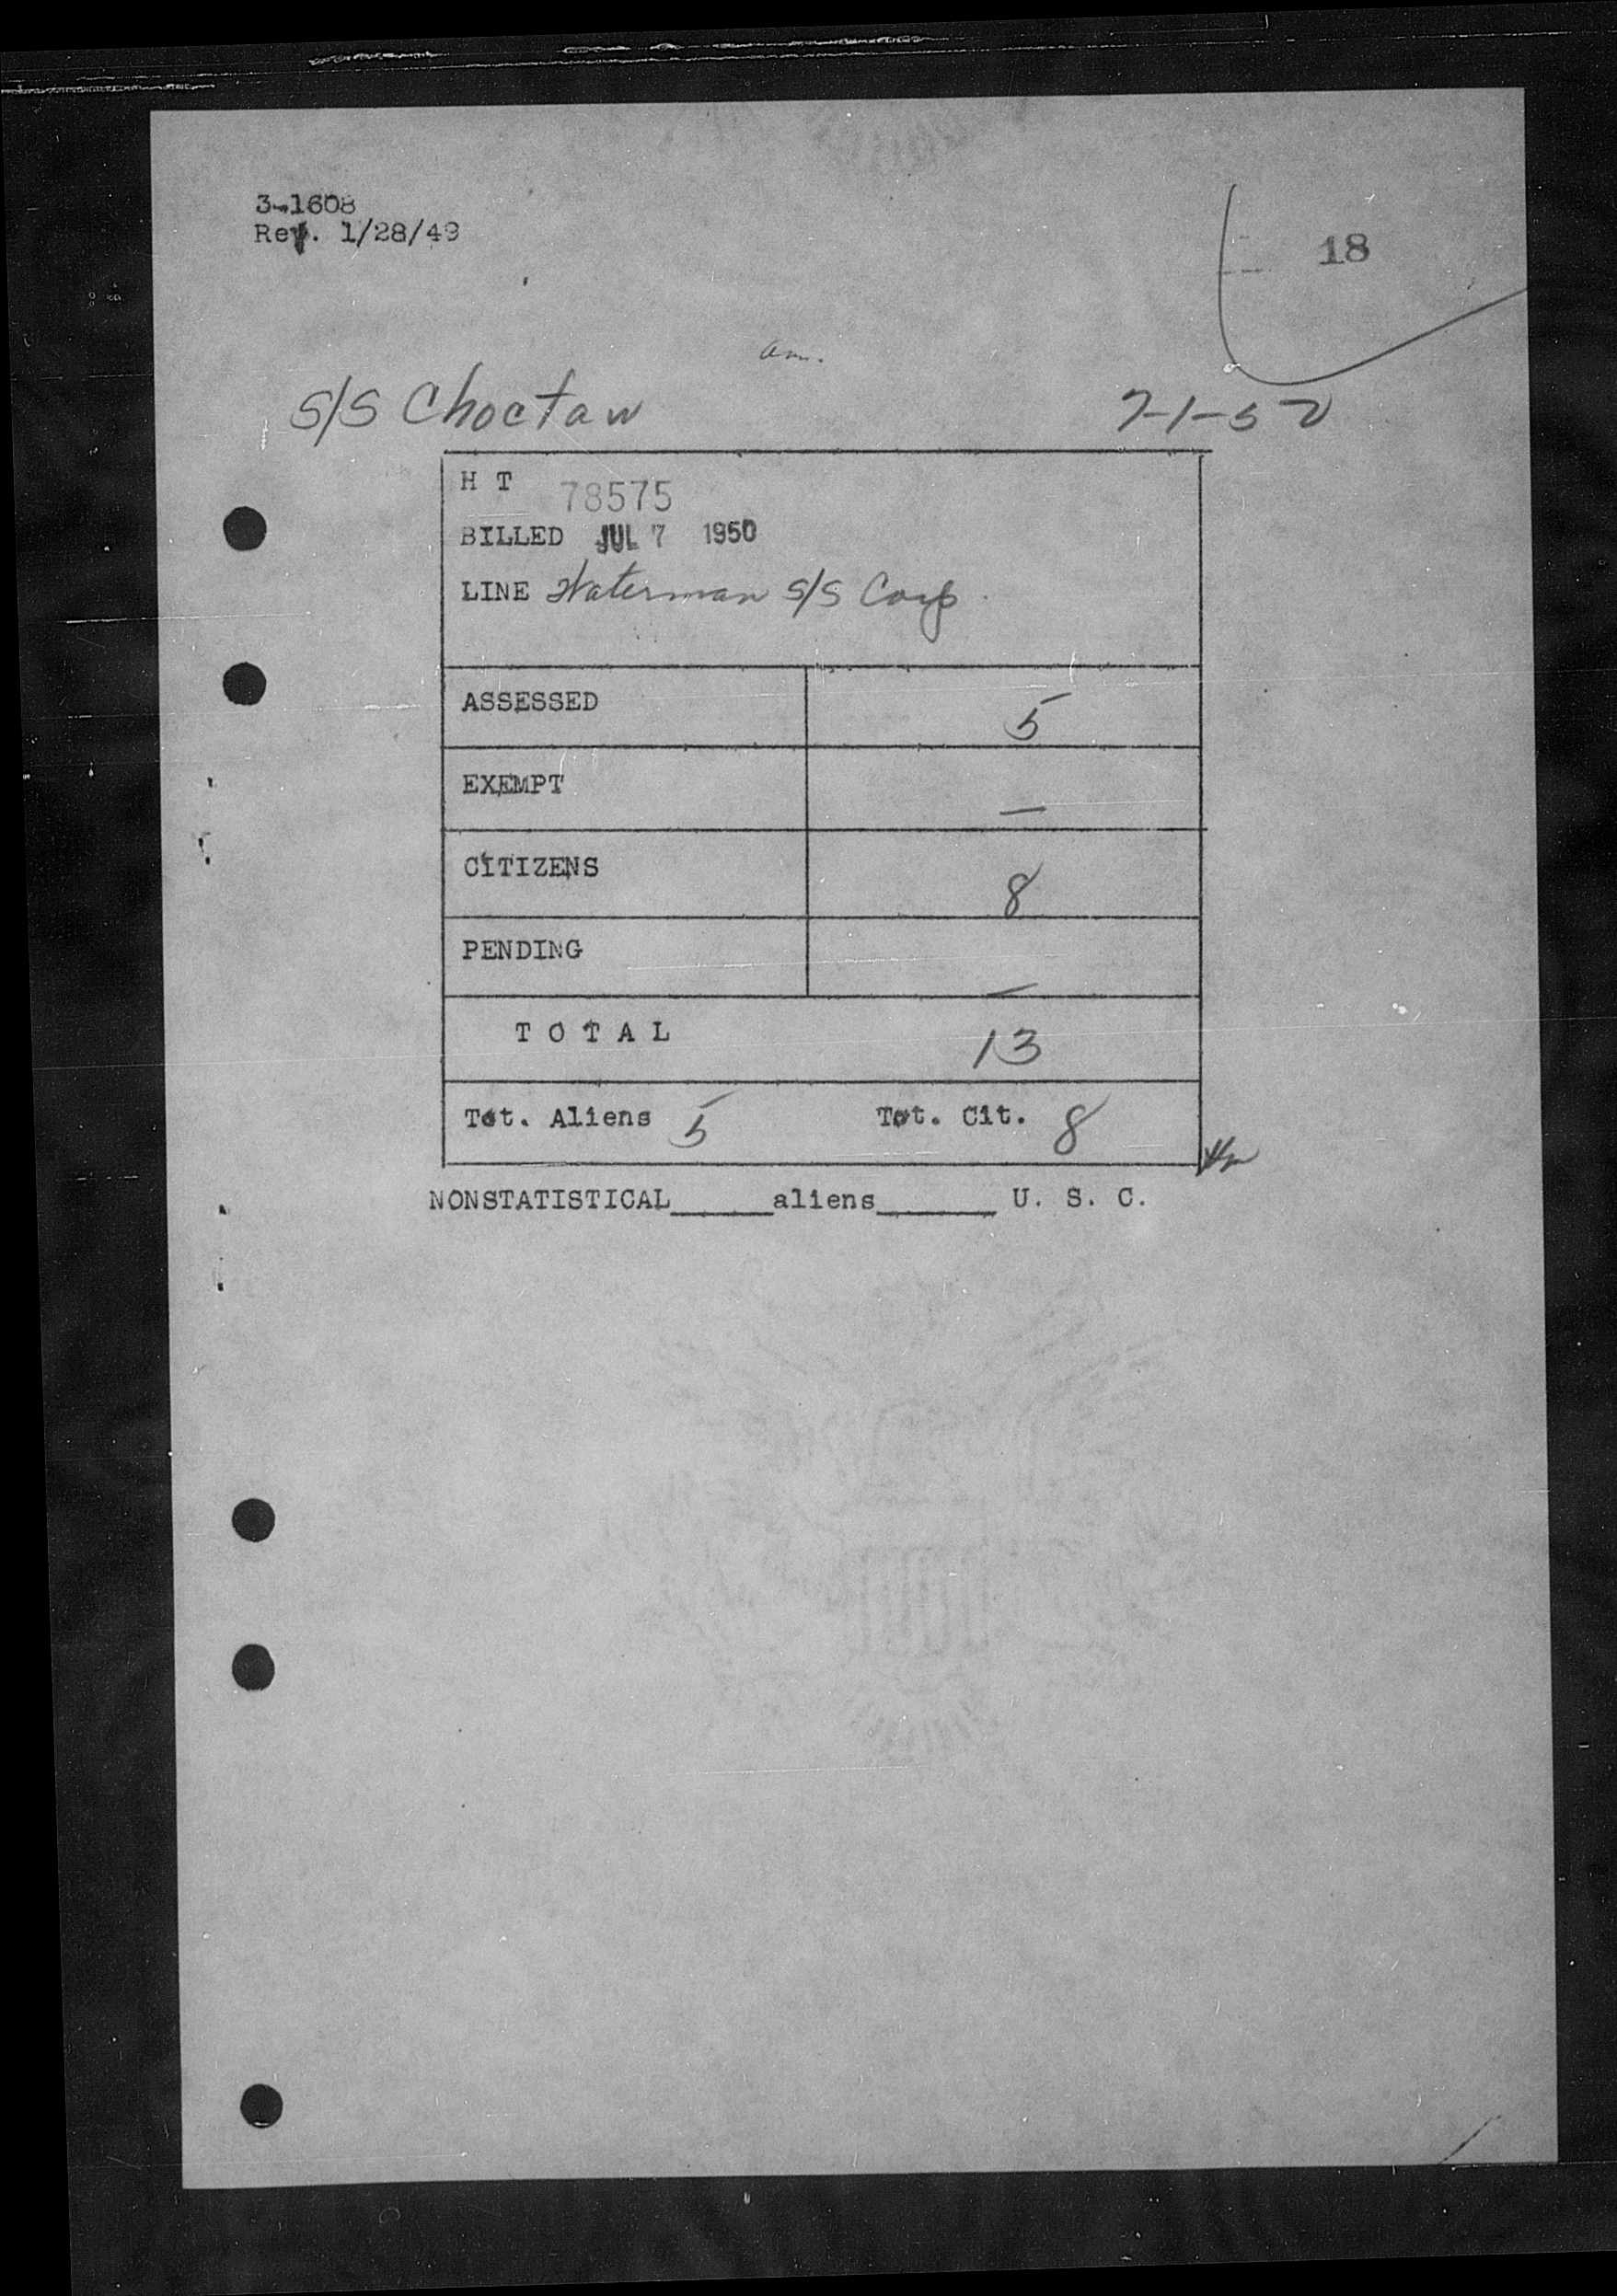 3-1608
Rev. 1/28/49
18
am.
S/S Choctaw 7-1-50
H T 78575
BILLED JUL 7 1950
LINE Waterman S/S Corp.
ASSESSED 5
EXEMPT —
CITIZENS 8
PENDING —
T O T A L 13
Tot. Aliens 5 Tot. Cit. 8
NONSTATISTICAL_____aliens______ U. S. C.